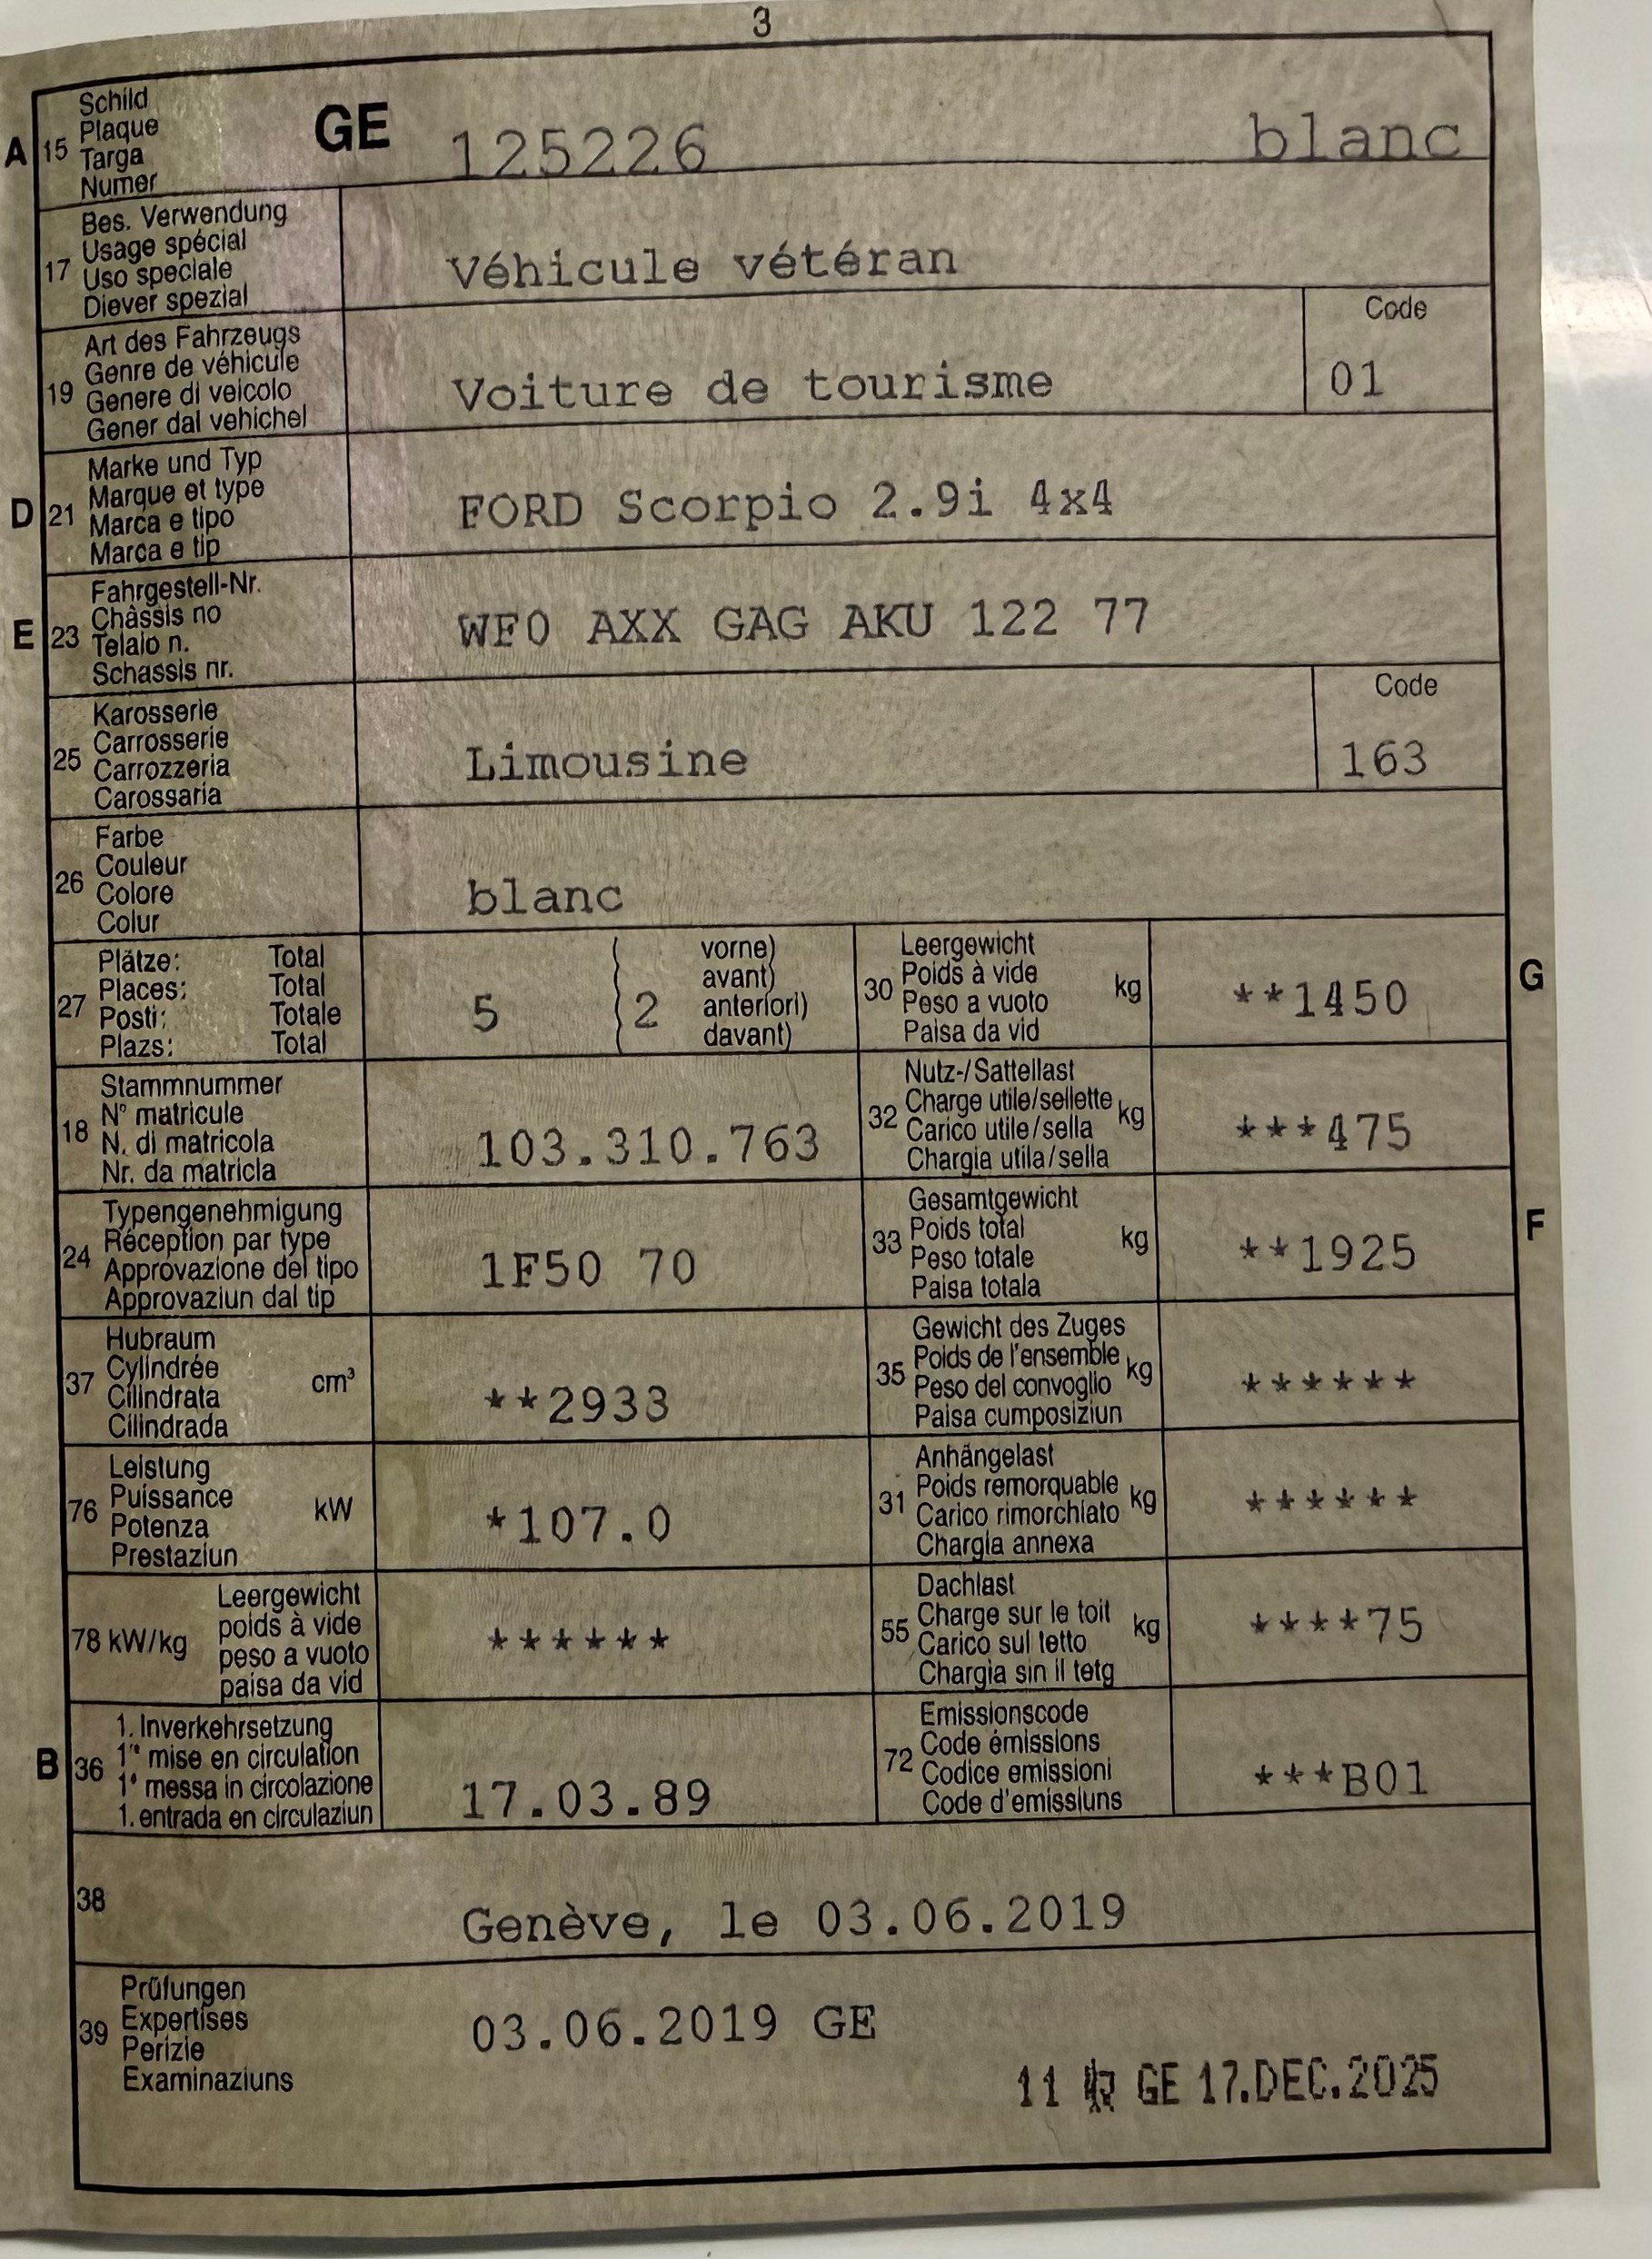 3
A 15 Schild
Plaque
Targa
Numer
GE 125226 blanc
17 Bes. Verwendung
Usage spécial
Uso speciale
Diever spezial
Véhicule vétéran
19 Art des Fahrzeugs
Genre de véhicule
Genere di veicolo
Gener dal vehichel
Voiture de tourisme
Code
01
D 21 Marke und Typ
Marque et type
Marca e tipo
Marca e tip
FORD Scorpio 2.9i 4x4
E 23 Fahrgestell-Nr.
Châssis no
Telaio n.
Schassis nr.
WF0 AXX GAG AKU 122 77
25 Karosserie
Carrosserie
Carrozzeria
Carossaria
Limousine
Code
163
26 Farbe
Couleur
Colore
Colur
blanc
27 Plätze: Total
Places: Total
Posti: Totale
Plazs: Total
5 ( 2 vorne)
avant)
anteriori)
davant)
30 Leergewicht
Poids à vide
Peso a vuoto
Paisa da vid
kg **1450 G
18 Stammnummer
N° matricule
N. di matricola
Nr. da matricla
103.310.763
32 Nutz-/Sattellast
Charge utile/sellette
Carico utile/sella
Chargia utila/sella
kg ***475
24 Typengenehmigung
Réception par type
Approvazione del tipo
Approvaziun dal tip
1F50 70
33 Gesamtgewicht
Poids total
Peso totale
Paisa totala
kg **1925 F
37 Hubraum
Cylindrée
Cilindrata
Cilindrada
cm³ **2933
35 Gewicht des Zuges
Poids de l'ensemble
Peso del convoglio
Paisa cumposiziun
kg ******
76 Leistung
Puissance
Potenza
Prestaziun
kW *107.0
31 Anhängelast
Poids remorquable
Carico rimorchiato
Chargia annexa
kg ******
78 kW/kg Leergewicht
poids à vide
peso a vuoto
paisa da vid
******
55 Dachlast
Charge sur le toit
Carico sul tetto
Chargia sin il tetg
kg ****75
B 36 1. Inverkehrsetzung
1re mise en circulation
1a messa in circolazione
1. entrada en circulaziun
17.03.89
72 Emissionscode
Code émissions
Codice emissioni
Code d'emissiuns
***B01
38 Genève, le 03.06.2019
39 Prüfungen
Expertises
Perizie
Examinaziuns
03.06.2019 GE
11 GE 17.DEC.2025